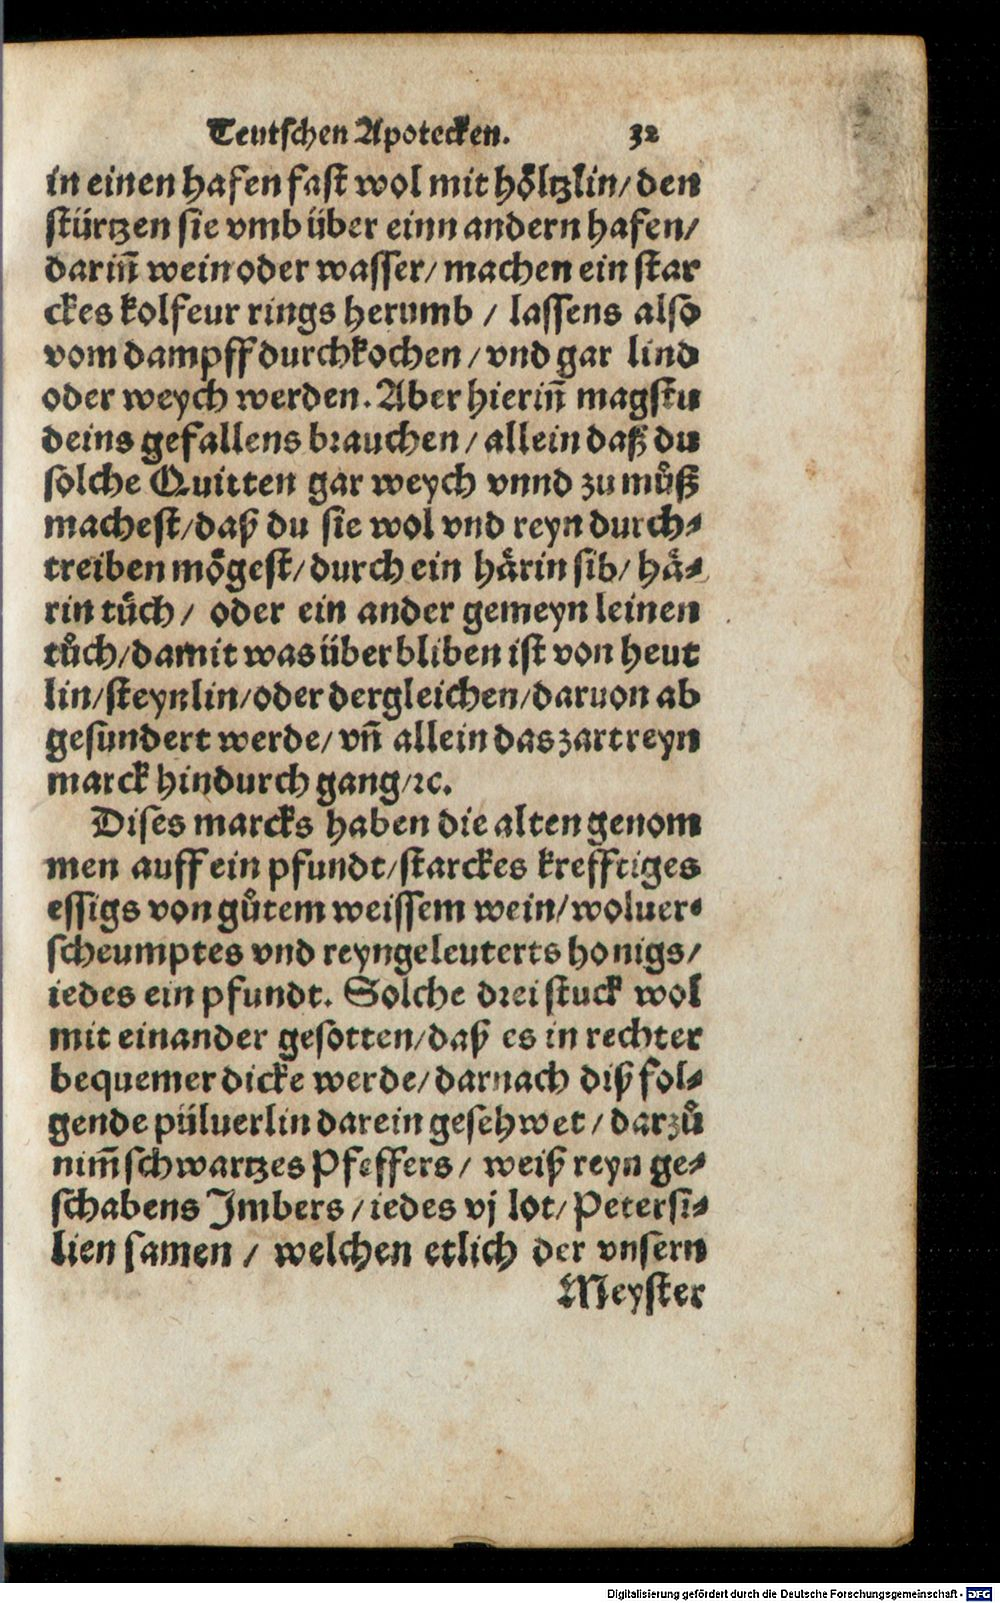 Teutschen Apotecken. 32
in einen hafen fast wol mit hoͤltzlin/ den
stürtzen sie vmb über einn andern hafen/
dariñ wein oder wasser/ machen ein star
ckes kolfeur rings herumb / lassens also
vom dampff durchkochen / vnd gar lind
oder weych werden. Aber hieriñ magstu
deins gefallens brauchen / allein daß du
solche Quitten gar weych vnnd zu muͤß
machest/daß du sie wol vnd reyn durch⸗
treiben moͤgest/ durch ein haͤrin sib/ haͤ⸗
rin tuͤch / oder ein ander gemeyn leinen
tuͦch/damit was überbliben ist von heut
lin/steynlin/oder dergleichen/daruon ab
gesündert werde/ vñ allein das zart reyn
marck hindurch gang/ꝛc.
Dises marcks haben die alten genom
men auff ein pfundt/starckes krefftiges
essigs von guͦtem weissem wein/woluer⸗
scheumptes vnd reyngeleuterts honigs/
iedes ein pfundt. Solche drei stuck wol
mit einander gesotten/daß es in rechter
bequemer dicke werde/ darnach diß fol⸗
gende püluerlin darein gesehwet / darzuͦ
nim̃ schwartzes Pfeffers/ weiß reyn ge⸗
schabens Jmbers / iedes vj lot/ Petersi⸗
lien samen / welchen etlich der vnsern
Meyster
Digitalisierung gefördert durch die Deutsche Forschungsgemeinschaft - DFG